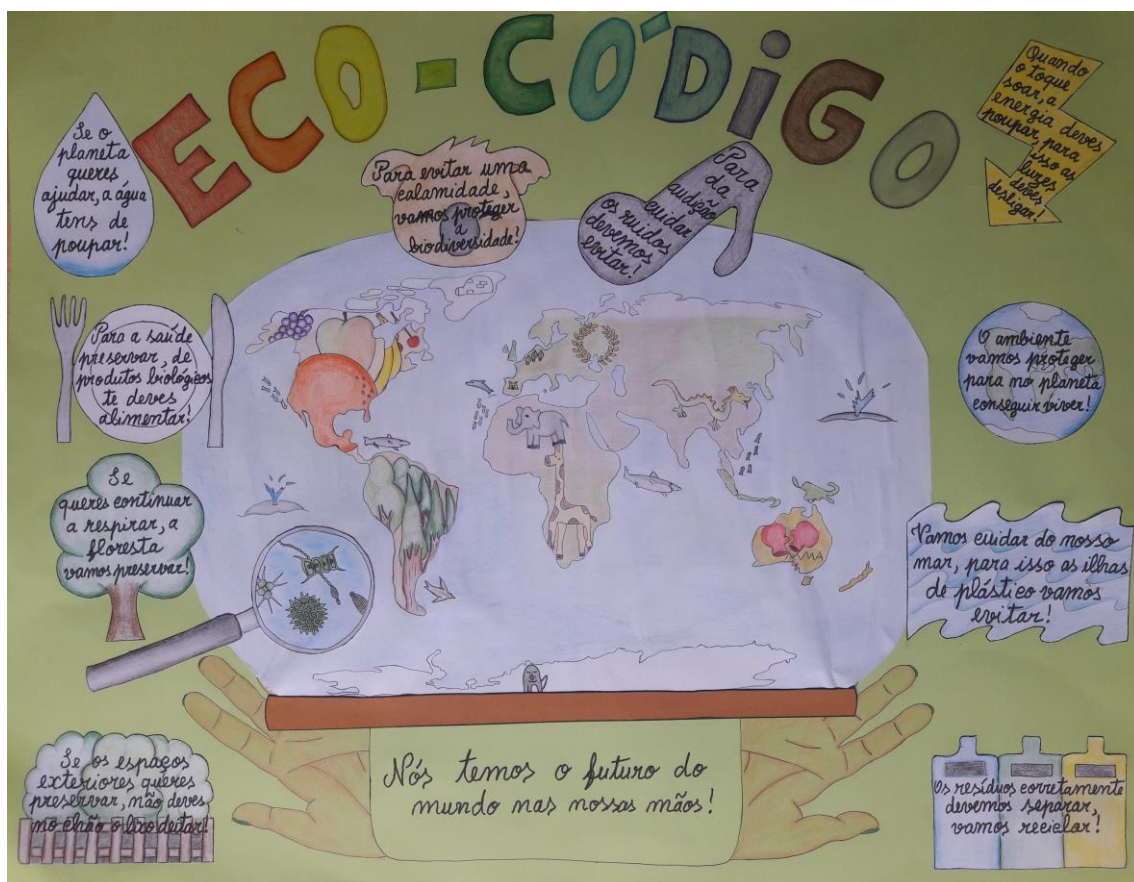 ECO-CÓDIGO
Se o
planeta
queres
ajudar, a água
tens de
poupar!
Para evitar uma
calamidade,
vamos proteger
a
biodiversidade!
Para
da
audição
cuidar
os ruidos
devemos
evitar!
Quando
o toque
soar, a
energia deves
poupar, para
isso as
luzes
deves
desligar!
Para a saúde
preservar, de
produtos biológicos
te deves
alimentar!
O ambiente
vamos proteger
para no planeta
conseguir viver!
Se
queres continuar
a respirar, a
floresta
vamos preservar!
Vamos cuidar do nosso
mar, para isso as ilhas
de plástico vamos
evitar!
Se os espaços
exteriores queres
preservar, não deves
no chão o lixo deitar!
Nós temos o futuro do
mundo nas nossas mãos!
Os resíduos corretamente
devemos separar,
vamos reciclar!